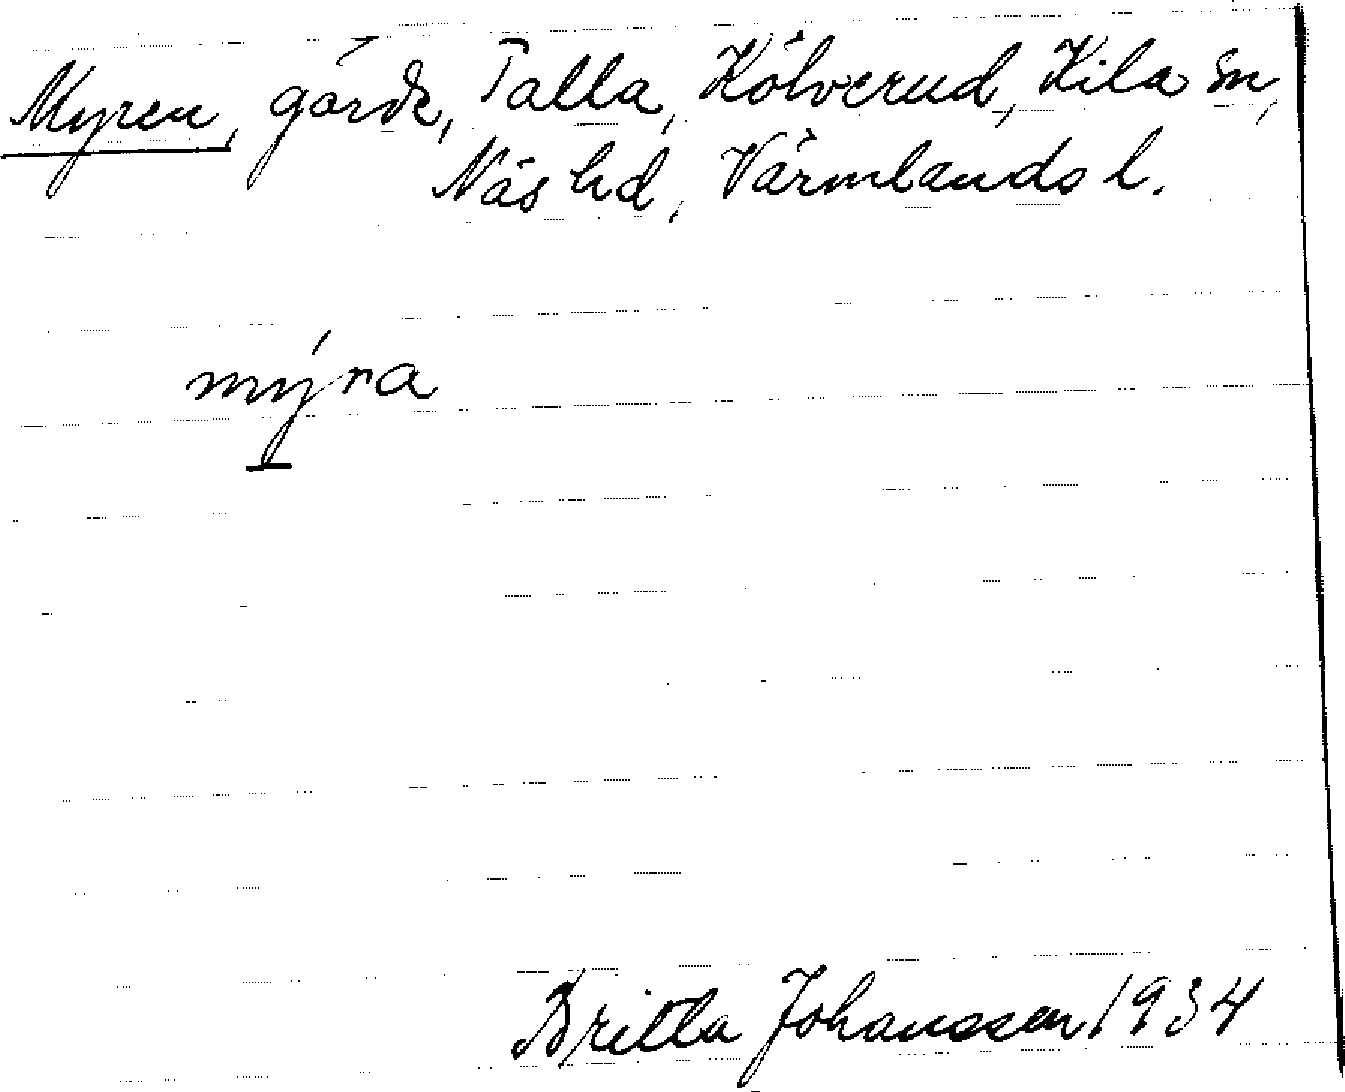 Myren, gärde, Talla, Kölverud, Kila sn,
Näs hd, Värmlands l.
mýra
Britta Johansson 1934